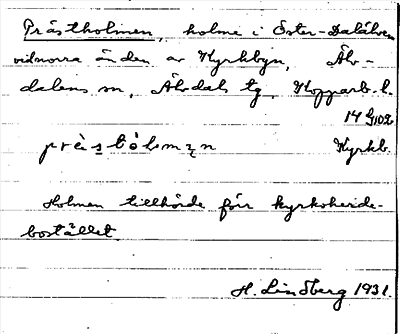 Prästholmen, holme i Öster-Dalälven
vid norra änden av Kyrkbyn, Älv-
dalens sn, Älvdals tg, Kopparb. l.
14 G10d
prèstòlmen Kyrkb.
Holmen tillhörde förr kyrkoherde-
bostället.
H. Lindberg 1931.